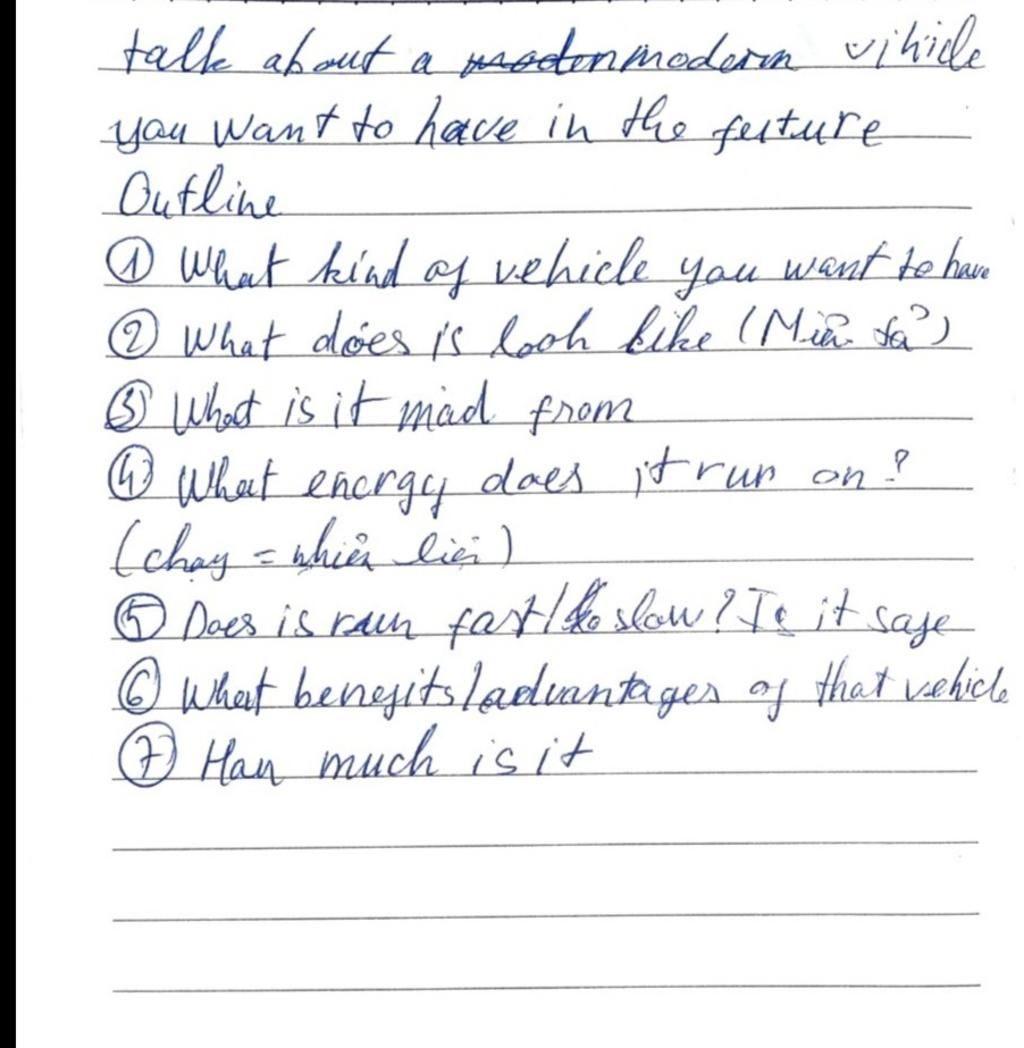 talk about a moderm vihicle
you want to have in the futture
Outline
① What kind of vehicle you want to have
② What does is look like (Miêu tả)
③ What is it mad from
④ What energy does it run on?
(chạy = nhiên liệu)
⑤ Does is run fast/ slow? Is it safe
⑥ What benefits/advantages of that vehicle
⑦ How much is it